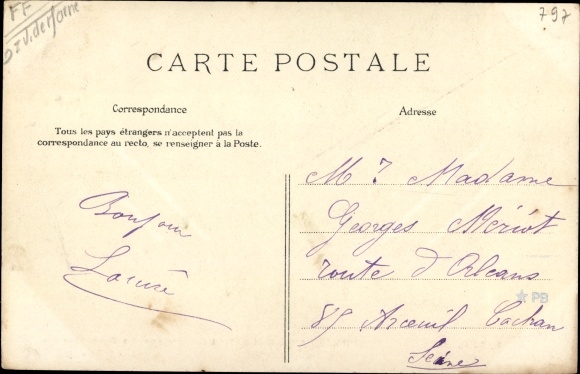 FF
797
CARTE POSTALE
Correspondance
Tous les pays étrangers n'acceptent pas la
correspondance au recto, se renseigner à la Poste.
Bonjour
Adresse
Mr ? Madame
Georges Mériot
route d'Orléans
85 Arceuil Cachan
Seine
PB